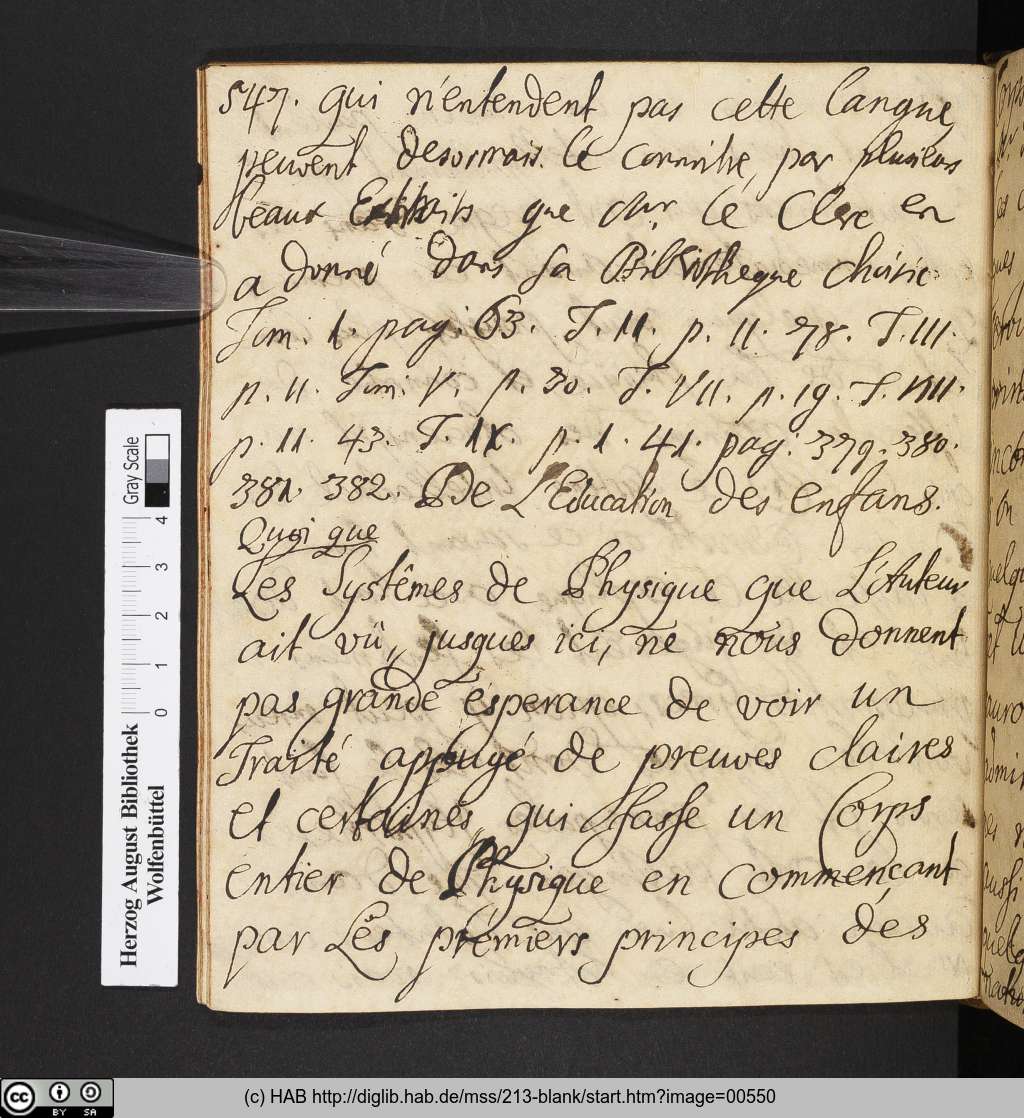 547. qui n'entendent pas cette langue,
peuvent desormais le connoitre, par plusieurs
beaux Extraits que Mr. le Clerc en
a donné dans sa Bibliotheque choisie
Tom. 1. pag. 63. T. 11. p. 11. 78. T. III.
p. 11. Tom. V. p. 30. T. VII. p. 19. T. VIII.
p. 11. 43. T. IX. p. 1. 41. pag. 379. 380.
381. 382. De L'Education des enfans.
Quoi que
Les Systêmes de Physique que L'Auteur
ait vû, jusques ici, ne nous donnent
pas grande ésperance de voir un
Traité appuyé de preuves claires
et certaines, qui fasse un Corps
entier de Physique en commençant
par Lés prémiers principes dés
Gray Scale
0 1 2 3 4
Herzog August Bibliothek
Wolfenbüttel
cc BY SA
(c) HAB http://diglib.hab.de/mss/213-blank/start.htm?image=00550